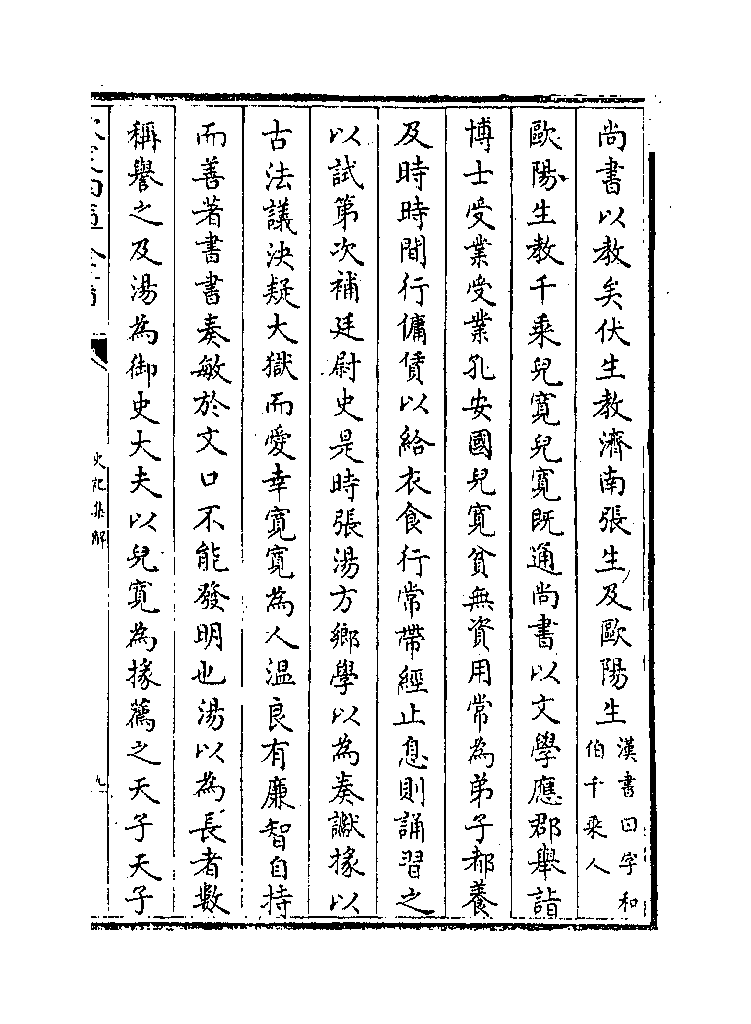 尚書以教矣伏生教濟南張生及歐陽生漢書曰字和伯千乘人
歐陽生教千乘兒寛兒寛既通尚書以文學應郡舉詣
博士受業受業孔安國兒寛貧無資用常為弟子都養
及時時間行傭賃以給衣食行常帶經止息則誦習之
以試第次補廷尉史是時張湯方鄉學以為奏讞掾以
古法議決疑大獄而愛幸寛寛為人温良有廉智自持
而善著書書奏敏於文口不能發明也湯以為長者數
稱譽之及湯為御史大夫以兒寛為掾薦之天子天子
史記集解
九